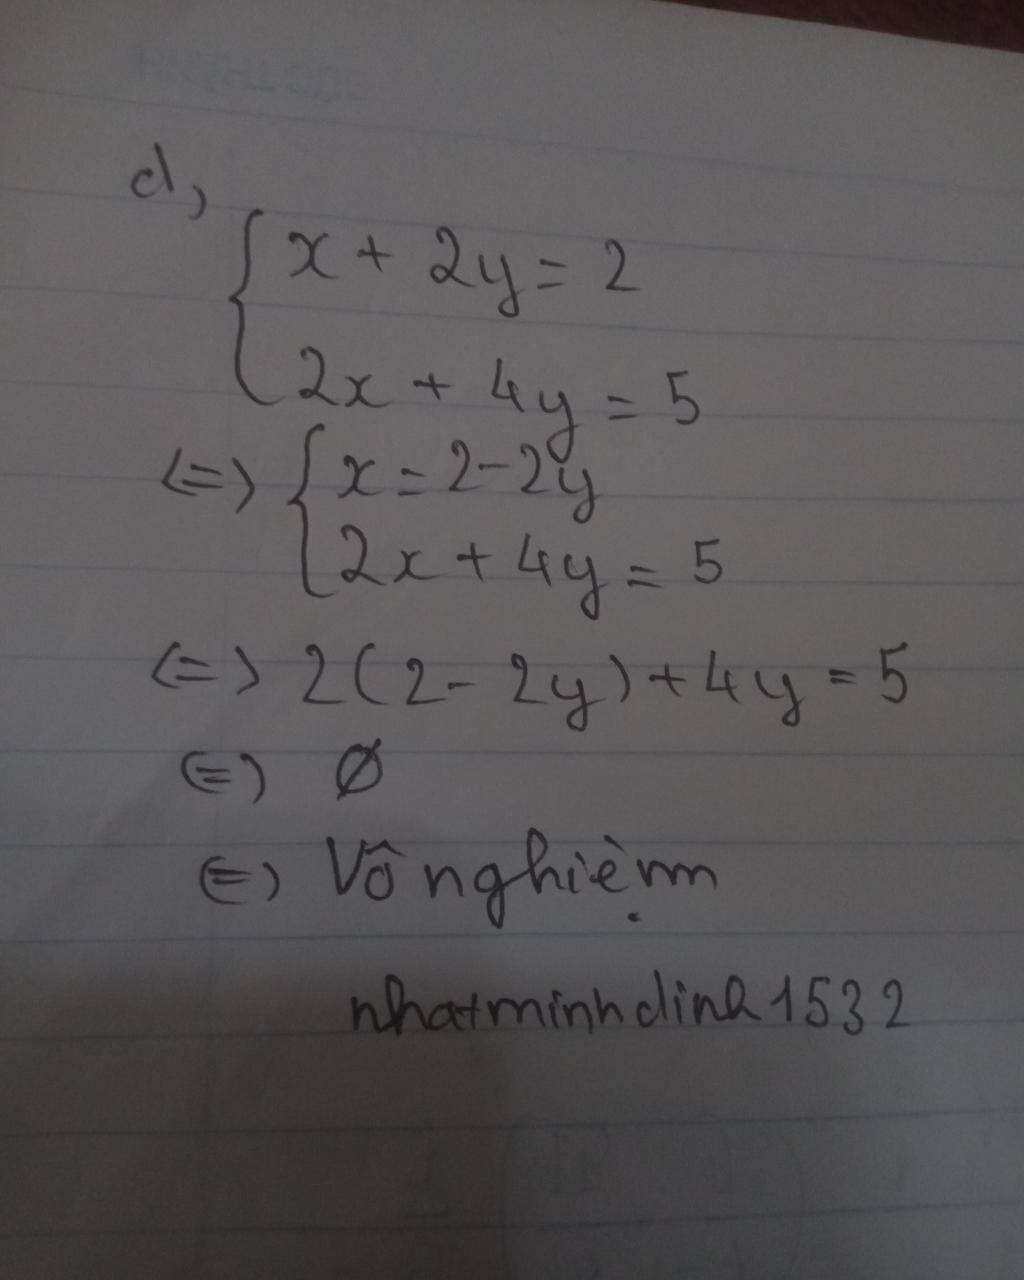 d,
x + 2y = 2
2x + 4y = 5
<=> x = 2 - 2y
2x + 4y = 5
<=> 2(2 - 2y) + 4y = 5
<=> Ø
<=> Vô nghiệm
nhatminhdinh1532